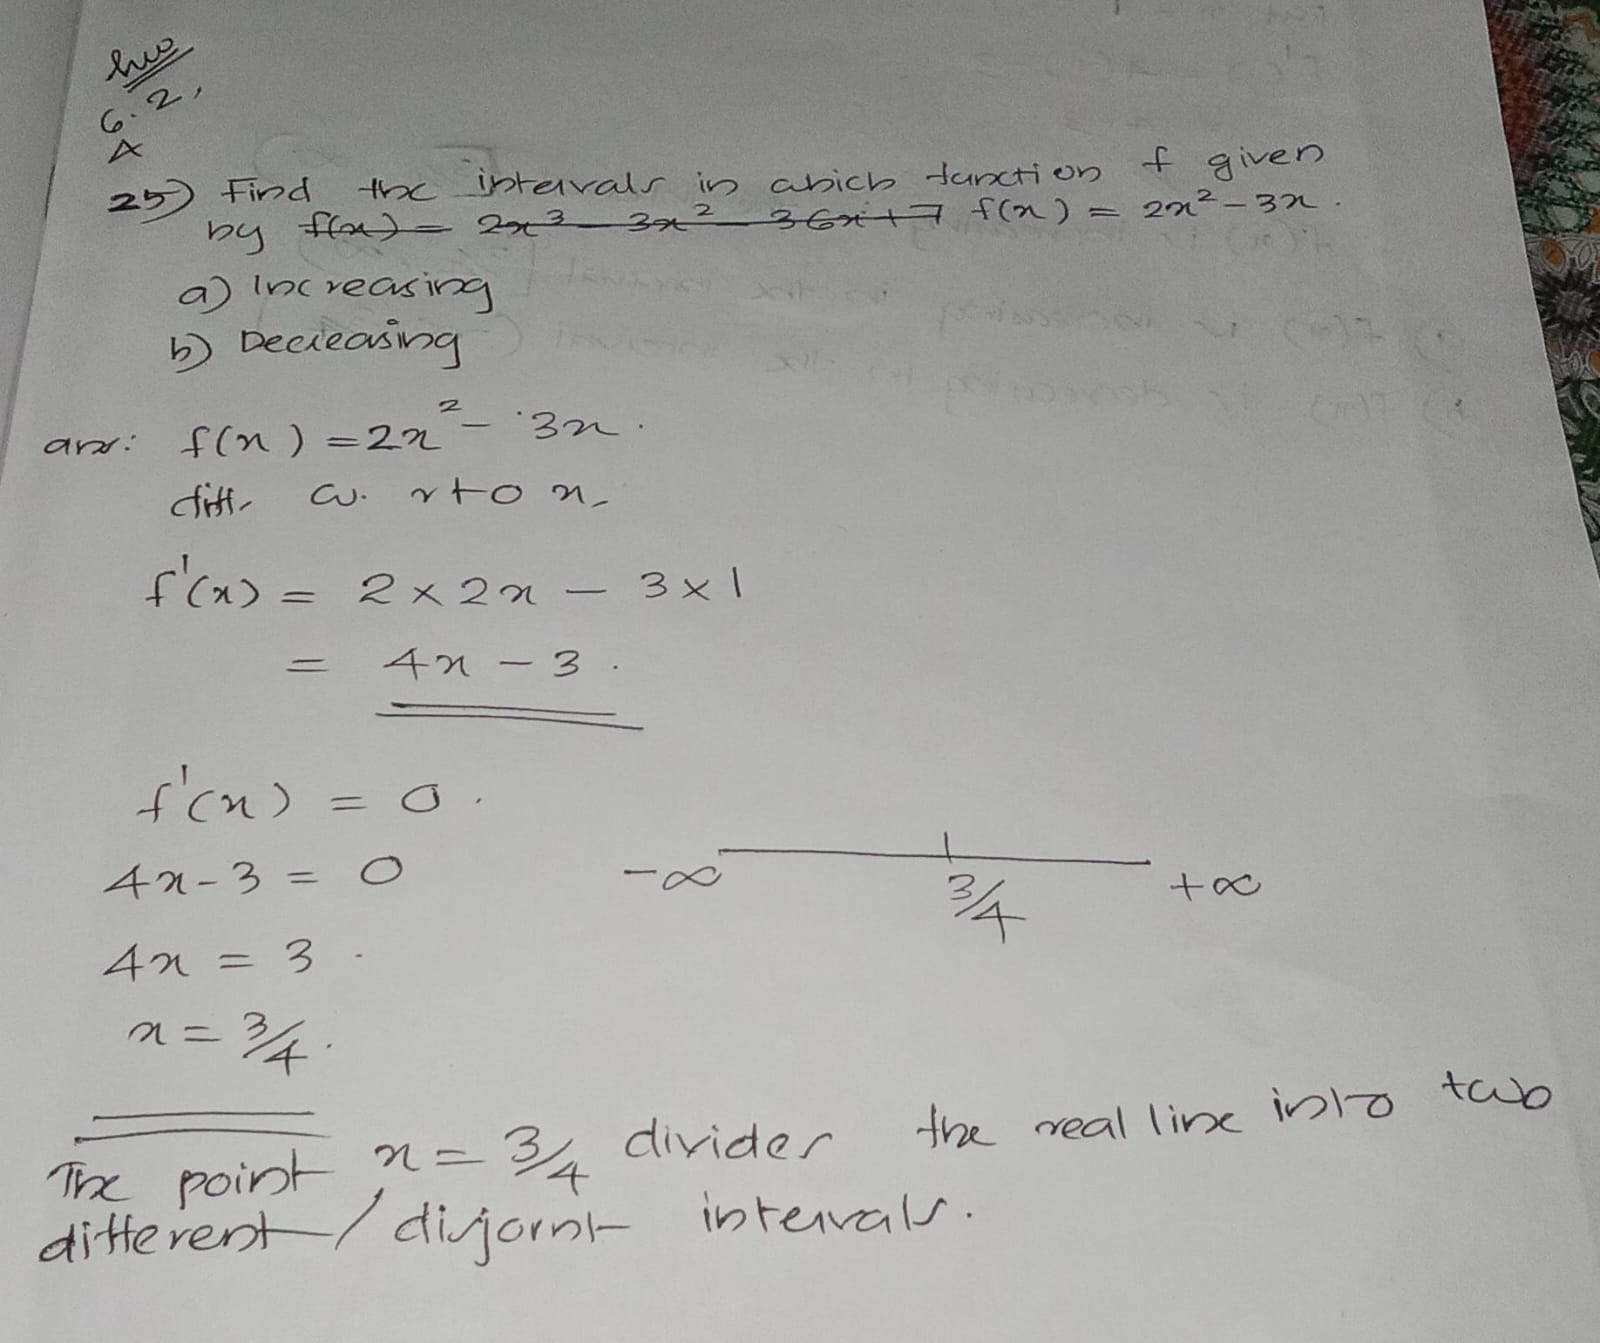 hw
6.2,
A
25) Find the intervals in which function f given
by f(x) = 2x³ - 3x² - 36x + 7 f(x) = 2x² - 3x.
a) Increasing
b) Decreasing
ans: f(x) = 2x² - 3x.
diff. w. r to x,
f'(x) = 2 × 2x - 3 × 1
= 4x - 3.
f'(x) = 0.
4x - 3 = 0
-∞ 3/4 +∞
4x = 3.
x = 3/4.
The point x = 3/4 divides the real line into two
different / disjoint intervals.